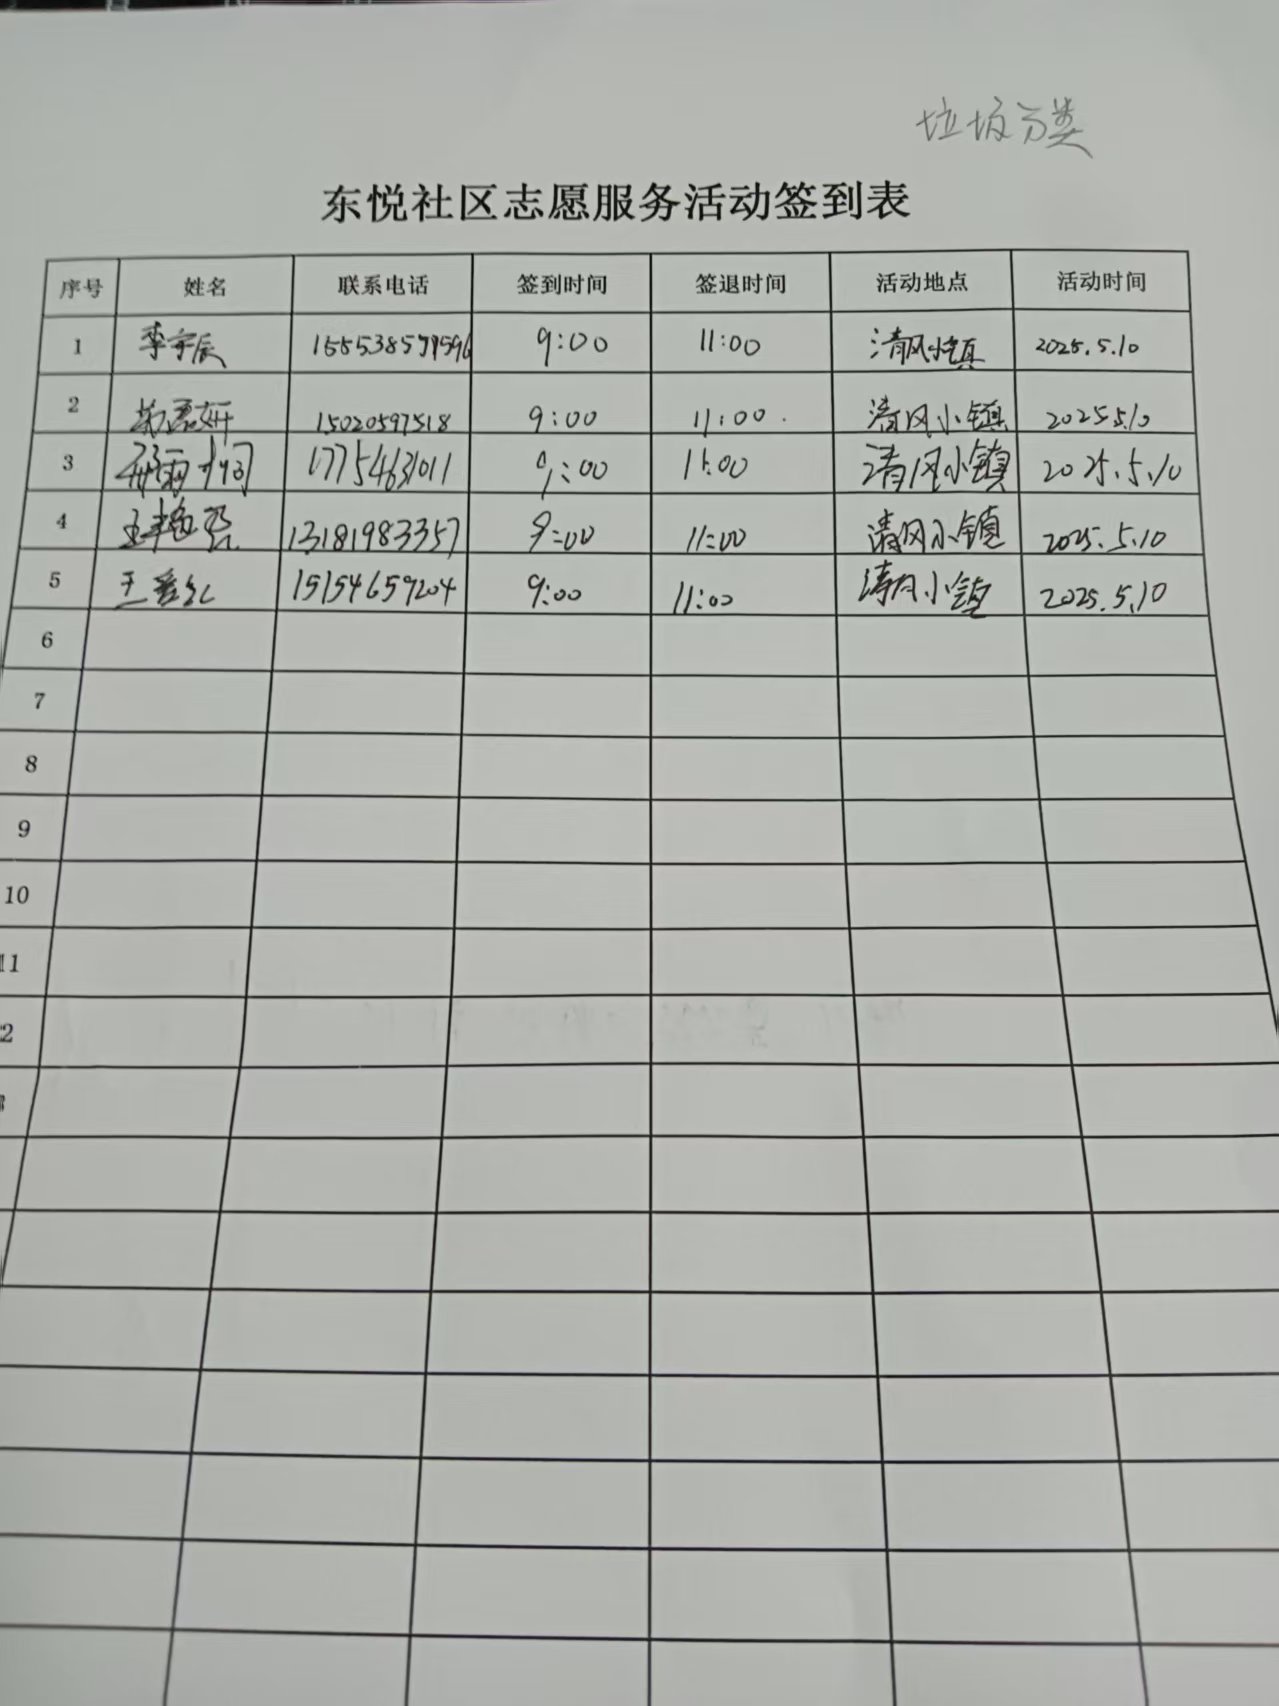 垃圾分类
东悦社区志愿服务活动签到表
序号 姓名 联系电话 签到时间 签退时间 活动地点 活动时间
1 李宇辰 9:00 11:00 清风小镇 2025.5.10
2 15020597518 9:00 11:00 清风小镇 2025.5.10
3 17754631011 9:00 11:00 清风小镇 2025.5.10
4 王艳 13181983357 9:00 11:00 清风小镇 2025.5.10
5 王爱红 15154659204 9:00 11:00 清风小镇 2025.5.10
6
7
8
9
10
11
2